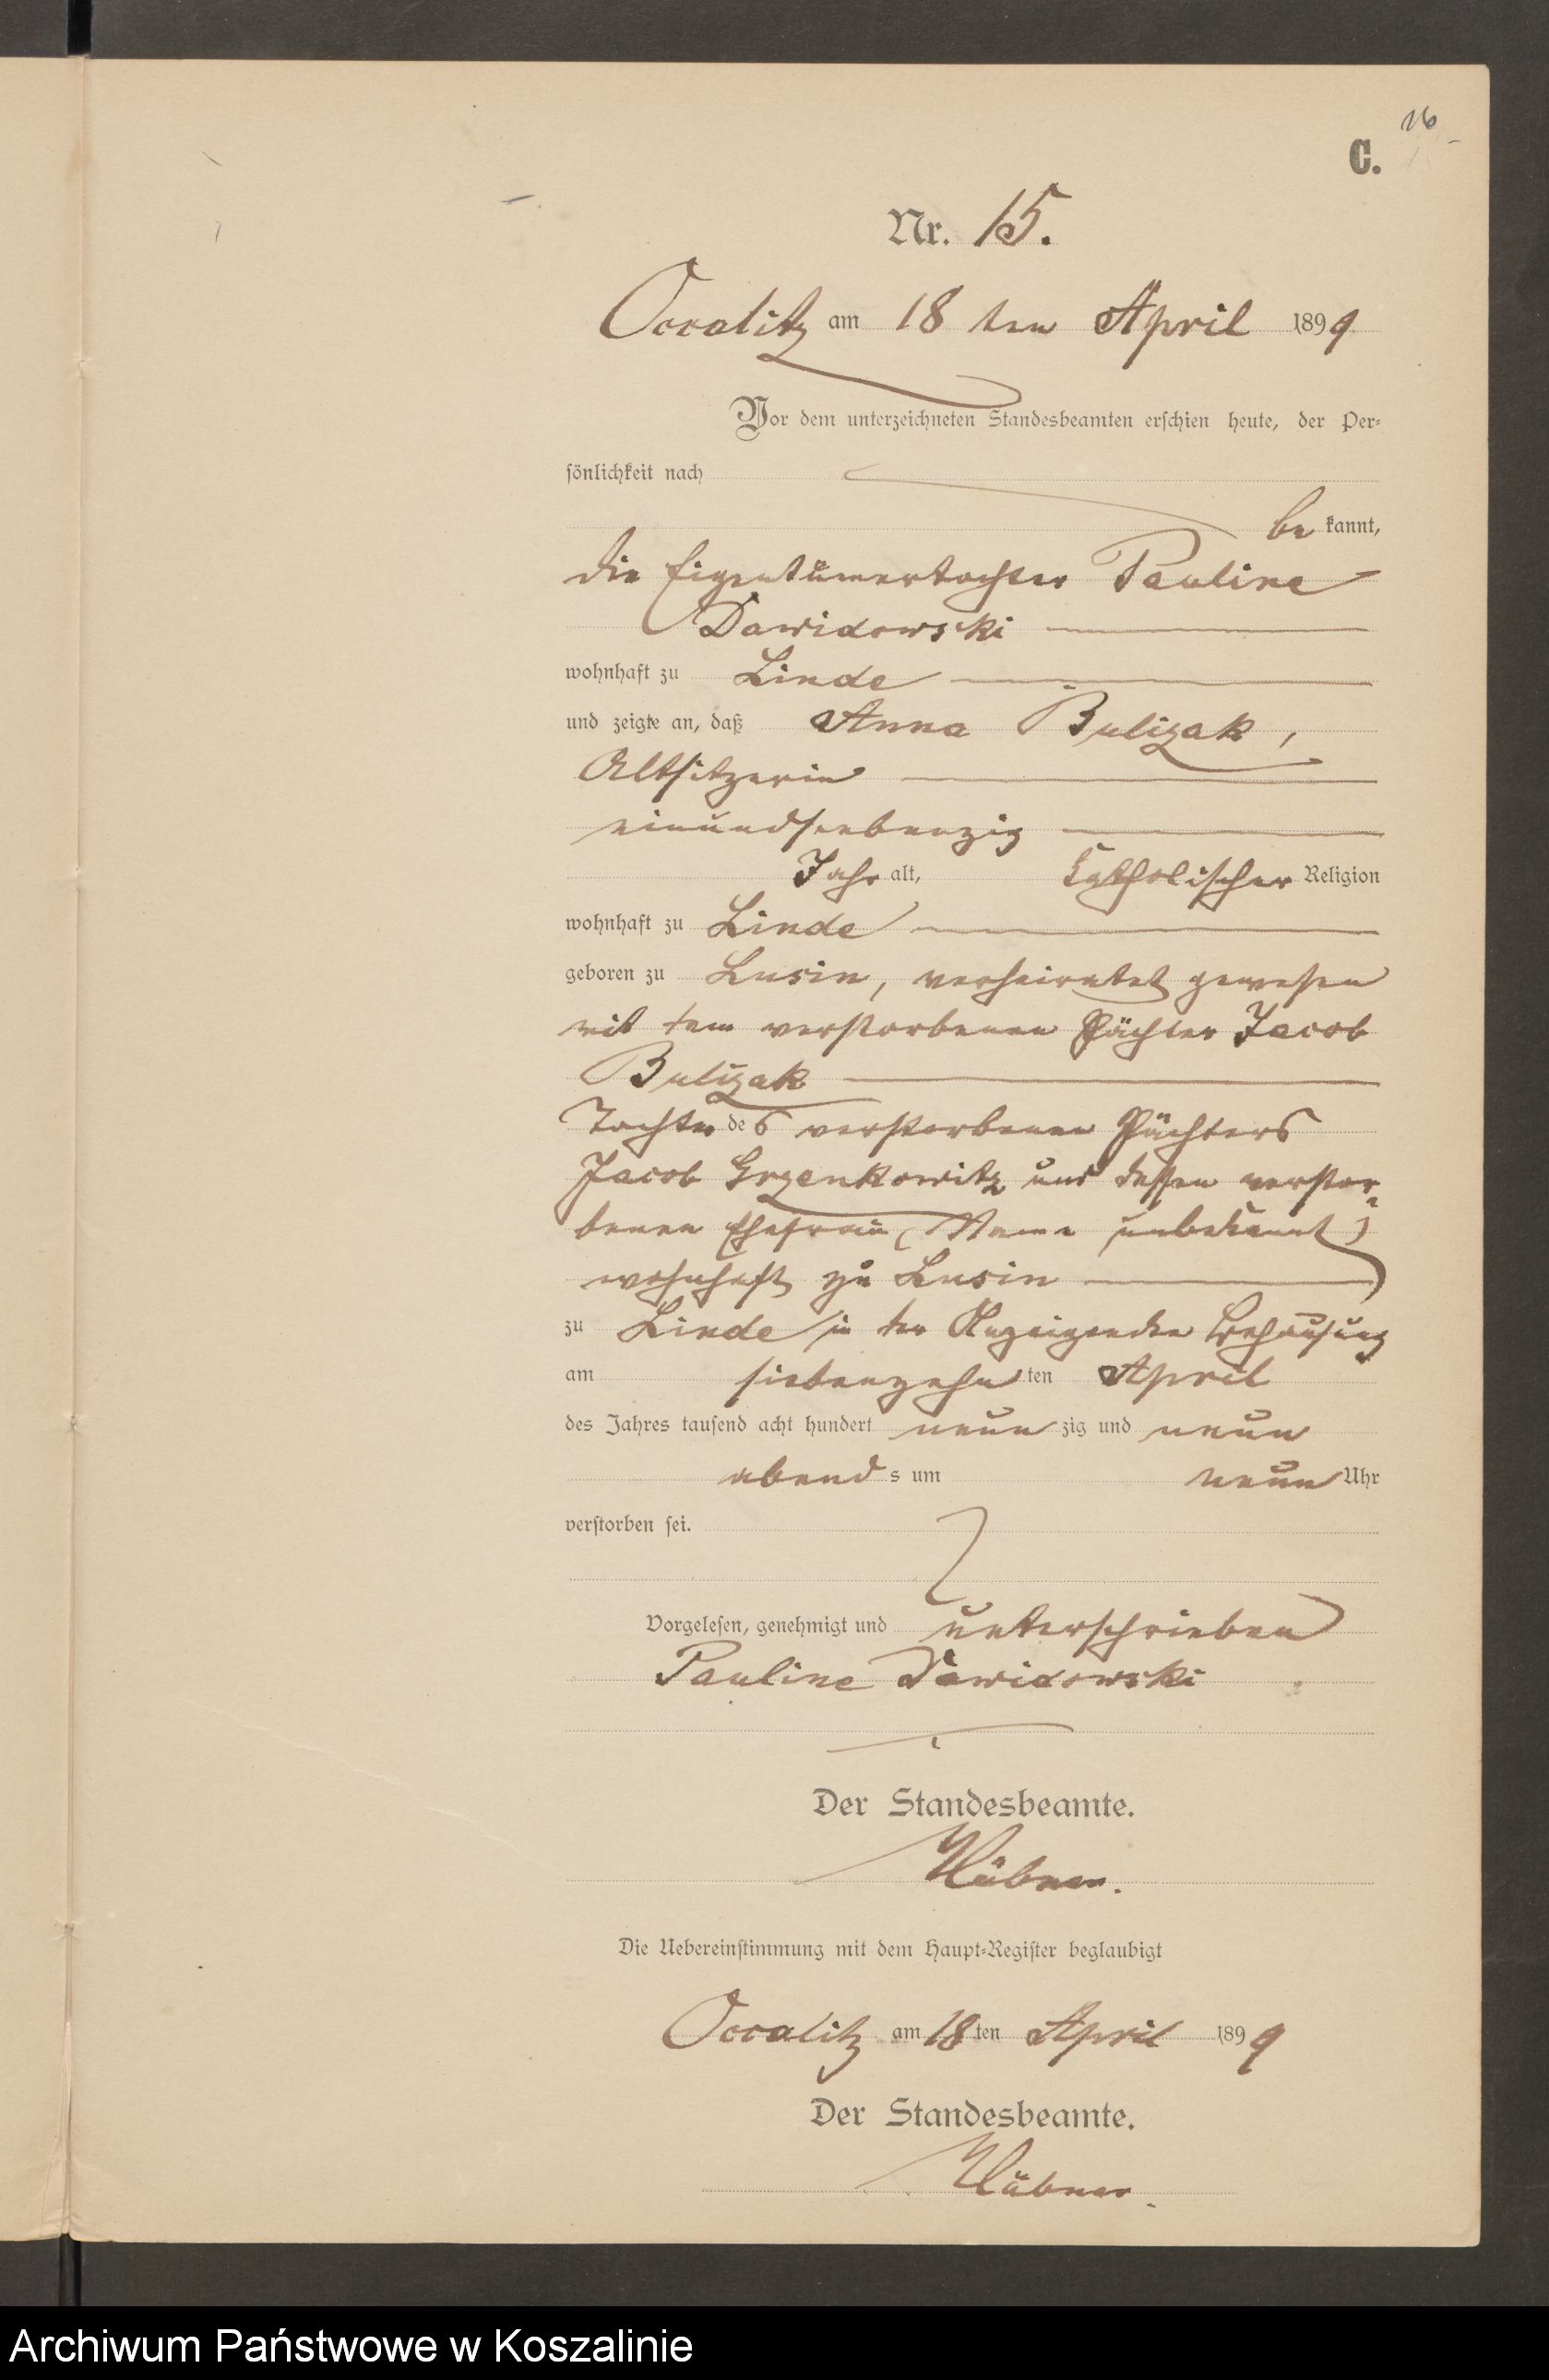 16
C.
Nr. 15.
Occalitz am 18 ten April 1899
Vor dem unterzeichneten Standesbeamten erschien heute, der Per-
sönlichkeit nach
be kannt,
die Eigentümertochter Pauline
Dawidowski
wohnhaft zu Linde
und zeigte an, daß Anna Bulizak,
Altsitzerin
einundsiebenzig
Jahr alt, katholischer Religion
wohnhaft zu Linde
geboren zu Lusin, verheiratet gewesen
mit dem verstorbenen Pächter Jacob
Bulizak
Tochter des verstorbenen Pächters
Jacob Grzenkowitz und dessen verstor-
benen Ehefrau (Name unbekannt)
wohnhaft zu Lusin
zu Linde in der Anzeigenden Behausung
am siebenzehnten April
des Jahres tausend acht hundert neunzig und neun
abends um neun Uhr
verstorben sei.
Vorgelesen, genehmigt und unterschrieben
Pauline Dawidowski
Der Standesbeamte.
Hübner.
Die Uebereinstimmung mit dem Haupt-Register beglaubigt
Occalitz am 18ten April 1899
Der Standesbeamte.
Hübner.
Archiwum Państwowe w Koszalinie